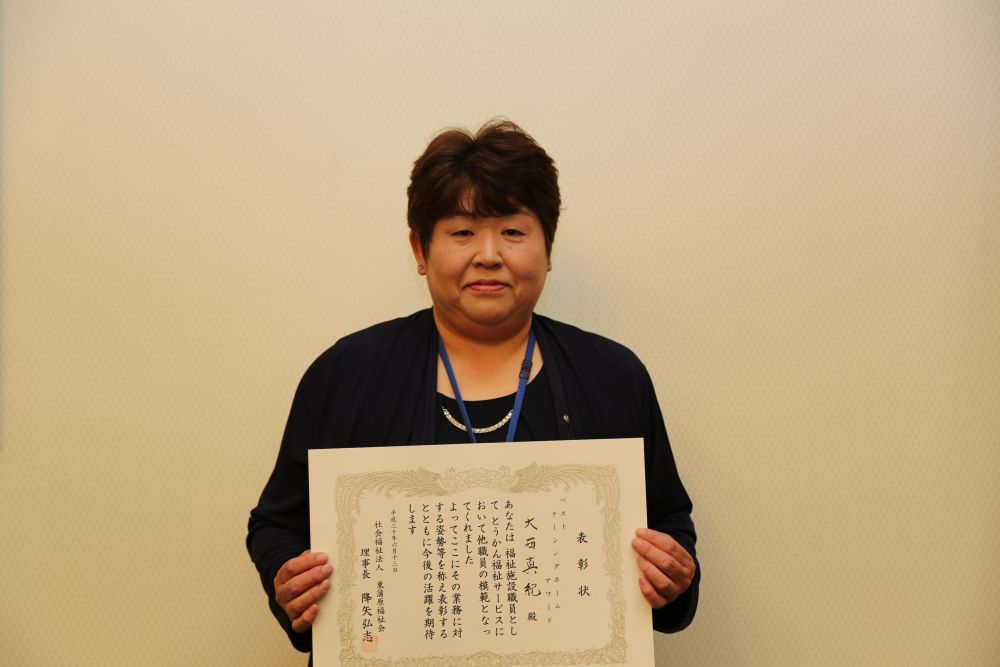 表彰状
ベスト
ナーシングホーム
アワード
大西真紀 殿
あなたは 福祉施設職員とし
て とうかん福祉サービスに
おいて他職員の模範となっ
てくれました
よってここにその業務に対
する姿勢等を称え表彰する
とともに今後の活躍を期待
します
平成三十年六月十三日
社会福祉法人 東蒲原福祉会
理事長 降矢弘志